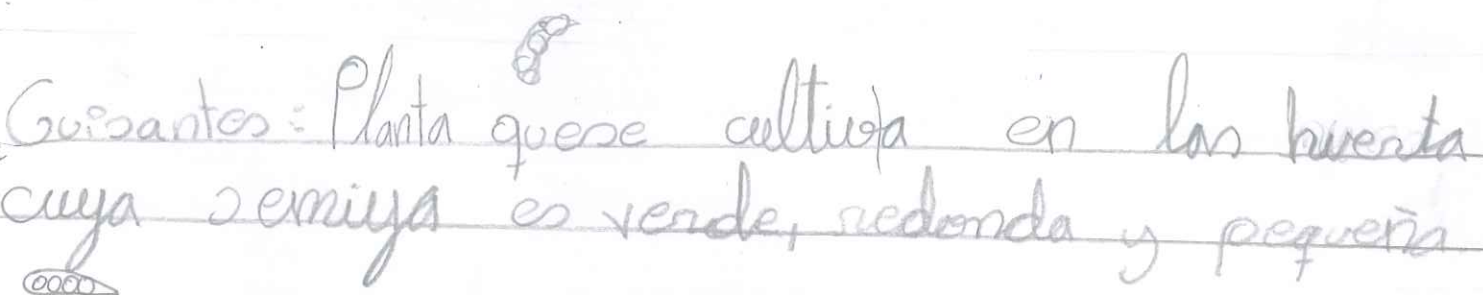 Guisantes: Planta quese cultiva en las huerta
cuya semiya es verde, redonda y pequeña